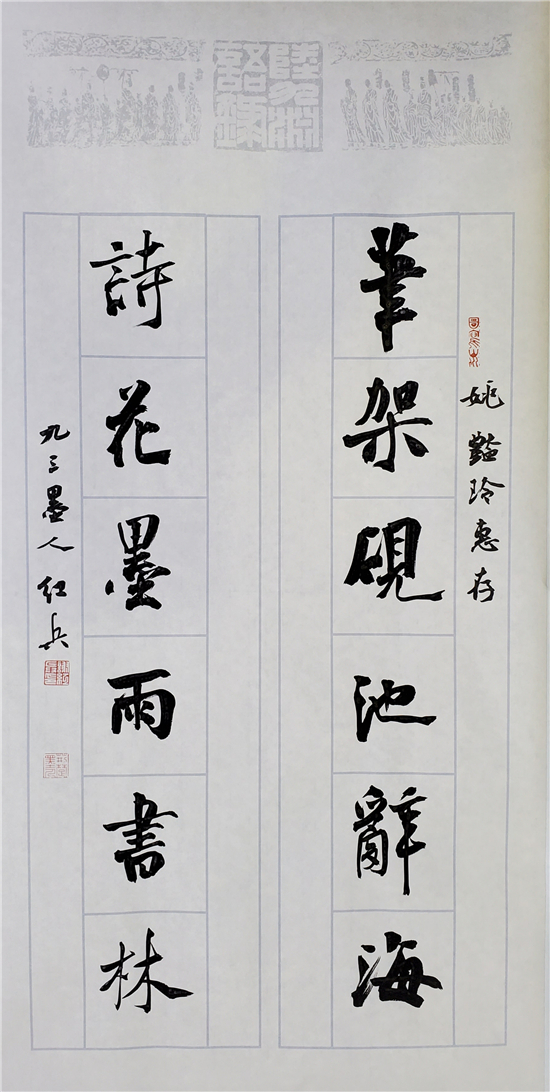 姚豔玲惠存
筆架硯池辭海
詩花墨雨書林
九三墨人红兵